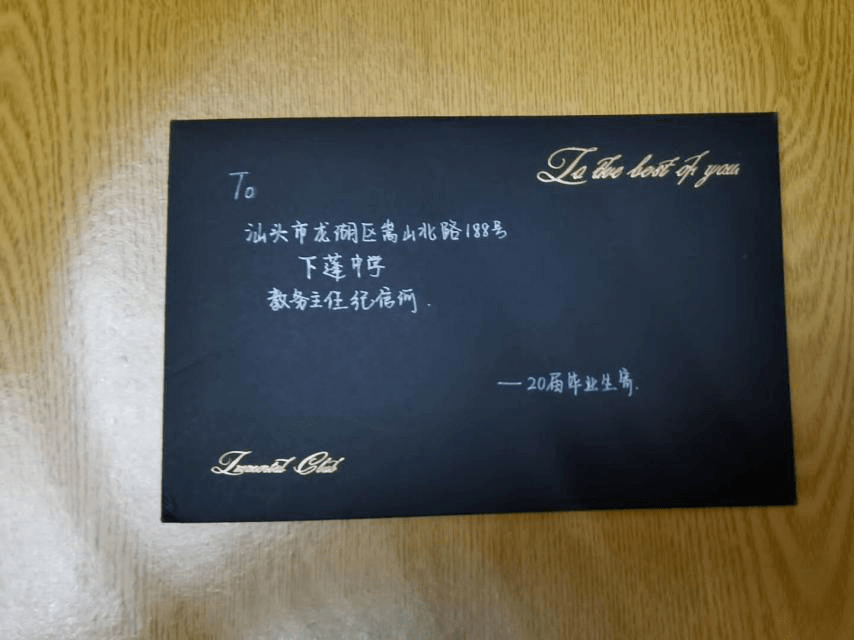 To the best of you
To
汕头市龙湖区嵩山北路188号
下蓬中学
教务主任纪信河.
—20届毕业生寄.
Club